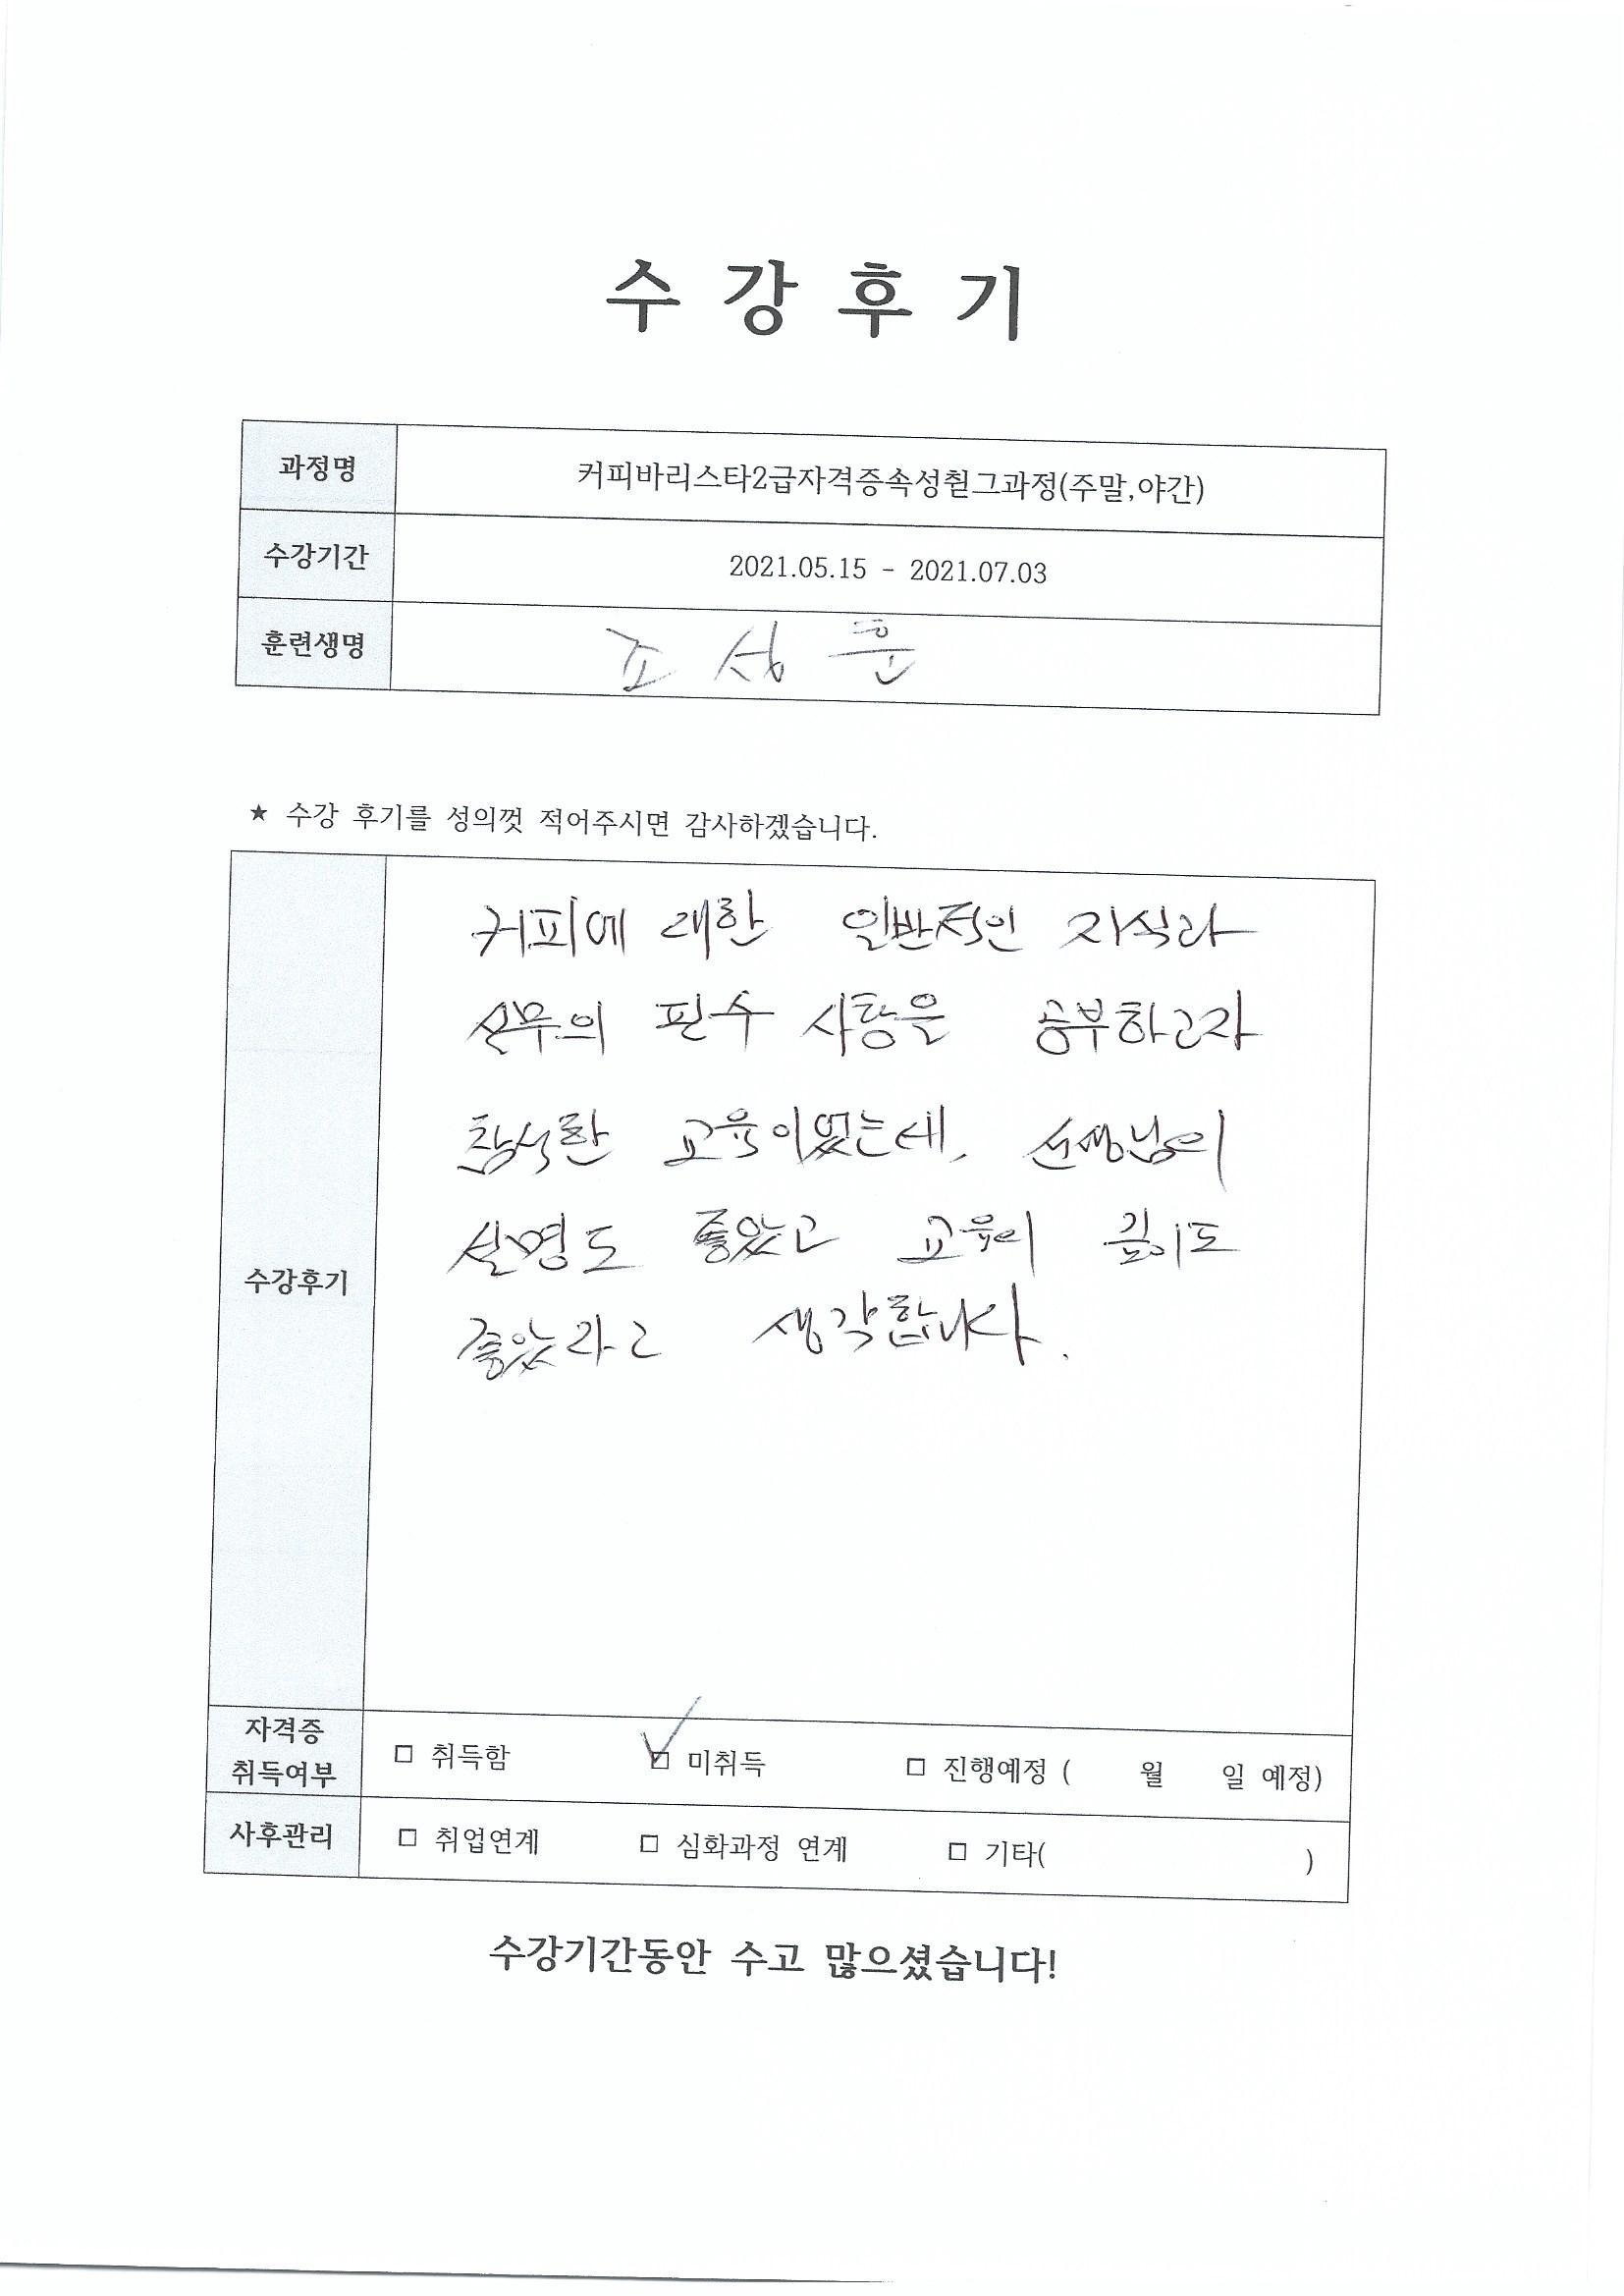 수 강 후 기
과정명 커피바리스타2급자격증속성췬그과정(주말,야간)
수강기간 2021.05.15 - 2021.07.03
훈련생명 조성훈
★ 수강 후기를 성의껏 적어주시면 감사하겠습니다.
수강후기
커피에 대한 일반적인 지식과
실무의 필수 사항을 공부하고자
참석한 교육이었는데, 선생님의
설명도 좋았고 교육의 깊이도
좋았다고 생각합니다.
자격증
취득여부
□ 취득함 □ 미취득 □ 진행예정 ( 월 일 예정)
사후관리 □ 취업연계 □ 심화과정 연계 □ 기타( )
수강기간동안 수고 많으셨습니다!